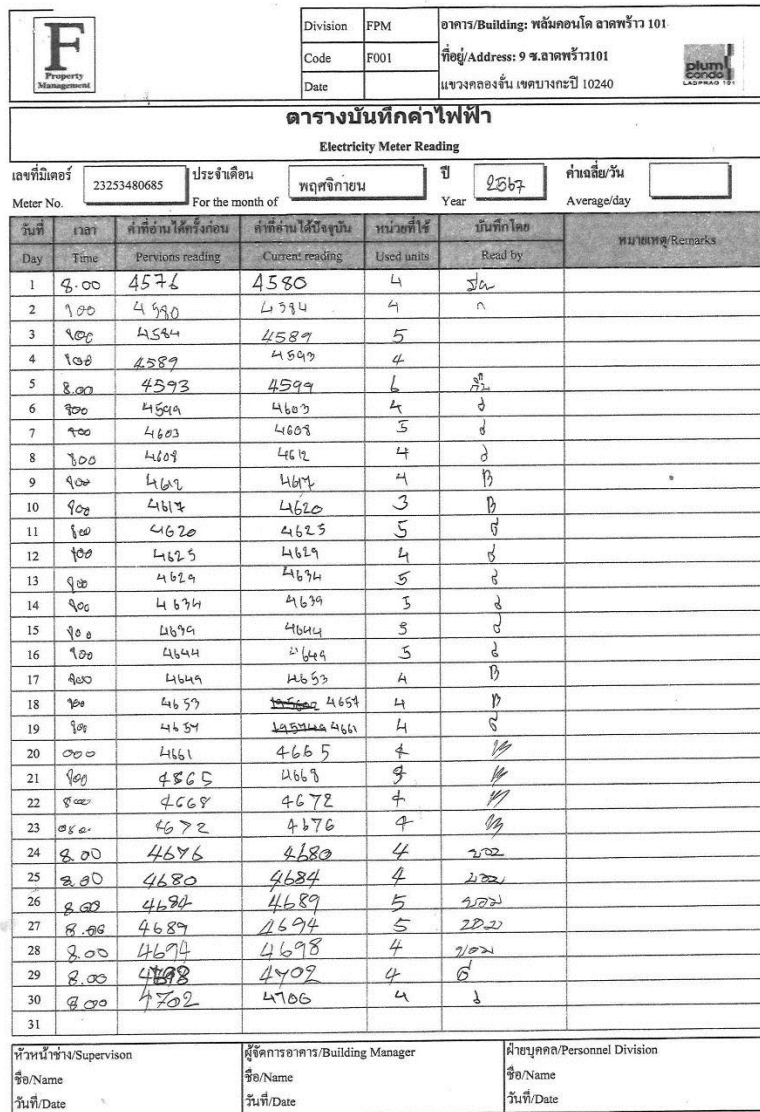 F
Property
Management
Division FPM อาคาร/Building: พลัมคอนโด ลาดพร้าว 101
Code F001 ที่อยู่/Address: 9 ซ.ลาดพร้าว101
Date แขวงคลองจั่น เขตบางกะปิ 10240
plum
condo
LADPRAO 101
ตารางบันทึกค่าไฟฟ้า
Electricity Meter Reading
เลขที่มิเตอร์ 23253480685 ประจำเดือน พฤศจิกายน ปี 2567 ค่าเฉลี่ย/วัน
Meter No. For the month of Year Average/day
วันที่ เวลา ค่าที่อ่านได้ครั้งก่อน ค่าที่อ่านได้ปัจจุบัน หน่วยที่ใช้ บันทึกโดย หมายเหตุ/Remarks
Day Time Pervions reading Current reading Used units Read by
1 8.00 4576 4580 4
2 900 4580 4584 4
3 900 4584 4589 5
4 4589 4593 4
5 8.00 4593 4599 6
6 900 4599 4603 4
7 900 4603 4608 5
8 800 4608 4612 4
9 900 4612 4617 4 B
10 900 4617 4620 3 B
11 800 4620 4625 5
12 900 4625 4629 4
13 900 4629 4634 5
14 900 4634 4639 5
15 900 4639 4644 5
16 900 4644 4649 5
17 900 4649 4653 4 B
18 900 4653 4657 4 B
19 900 4657 4661 4
20 000 4661 4665 4
21 900 4665 4668
22 800 4668 4672 4
23 4672 4676 4
24 8.00 4676 4680 4
25 8.00 4680 4684 4
26 8.00 4684 4689 5
27 8.00 4689 4694 5
28 8.00 4694 4698 4
29 8.00 4698 4702 4
30 8.00 4702 4706 4
31
หัวหน้าช่าง/Supervison ผู้จัดการอาคาร/Building Manager ฝ่ายบุคคล/Personnel Division
ชื่อ/Name ชื่อ/Name ชื่อ/Name
วันที่/Date วันที่/Date วันที่/Date